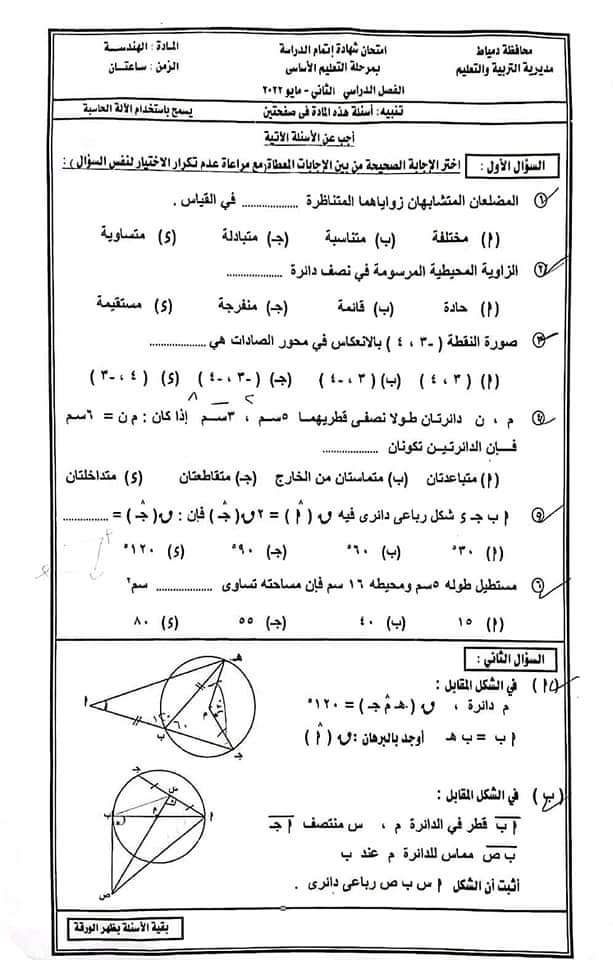 محافظة دمياط
مديرية التربية والتعليم
امتحان شهادة إتمام الدراسة
بمرحلة التعليم الأساسى
الفصل الدراسي الثاني - مايو ٢٠٢٢
المادة : الهندسة
الزمن : ساعتان
تنبيه : أسئلة هذه المادة فى صفحتين
يسمح باستخدام الآلة الحاسبة
أجب عن الأسئلة الآتية
السؤال الأول :
اختر الإجابة الصحيحة من بين الإجابات المعطاة(مع مراعاة عدم تكرار الاختيار لنفس السؤال ) :
١) المضلعان المتشابهان زواياهما المتناظرة .................. في القياس .
(أ) مختلفة (ب) متناسبة (جـ) متبادلة (ى) متساوية
٢) الزاوية المحيطية المرسومة في نصف دائرة ..................
(أ) حادة (ب) قائمة (جـ) منفرجة (ى) مستقيمة
٣) صورة النقطة ( -٣ ، ٤ ) بالانعكاس في محور الصادات هي ..................
(أ) ( ٣ ، ٤ ) (ب) ( ٣ ، -٤ ) (جـ) ( -٣ ، -٤ ) (ى) ( ٤ ، -٣ )
٤) م ، ن دائرتان طولا نصفى قطريهما ٥سم ، ٣سم إذا كان : م ن = ٦سم
فإن الدائرتين تكونان ..................
(أ) متباعدتان (ب) متماستان من الخارج (جـ) متقاطعتان (ى) متداخلتان
٥) أ ب جـ ى شكل رباعى دائرى فيه ق ( أ̂ ) = ٢ ق ( جـ̂ ) فإن : ق ( جـ̂ ) = ..................
(أ) ٣٠° (ب) ٦٠° (جـ) ٩٠° (ى) ١٢٠°
٦) مستطيل طوله ٥سم ومحيطه ١٦ سم فإن مساحته تساوى .................. سم٢
(أ) ١٥ (ب) ٤٠ (جـ) ٥٥ (ى) ٨٠
السؤال الثاني :
(أ) في الشكل المقابل :
م دائرة ، ق ( هـ م̂ جـ ) = ١٢٠°
أ ب = ب هـ أوجد بالبرهان: ق ( أ̂ )
هـ
أ
م
ب
جـ
١٢٠
٦٠
(ب) في الشكل المقابل :
أب قطر في الدائرة م ، س منتصف أجـ
ب ص مماس للدائرة م عند ب
أثبت أن الشكل أ س ب ص رباعى دائرى .
جـ
س
ب
م
أ
ص
بقية الأسئلة بظهر الورقة